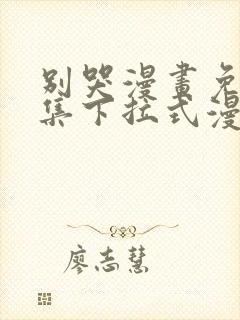 別哭漫畫免
集下拉式漫
廖志慧